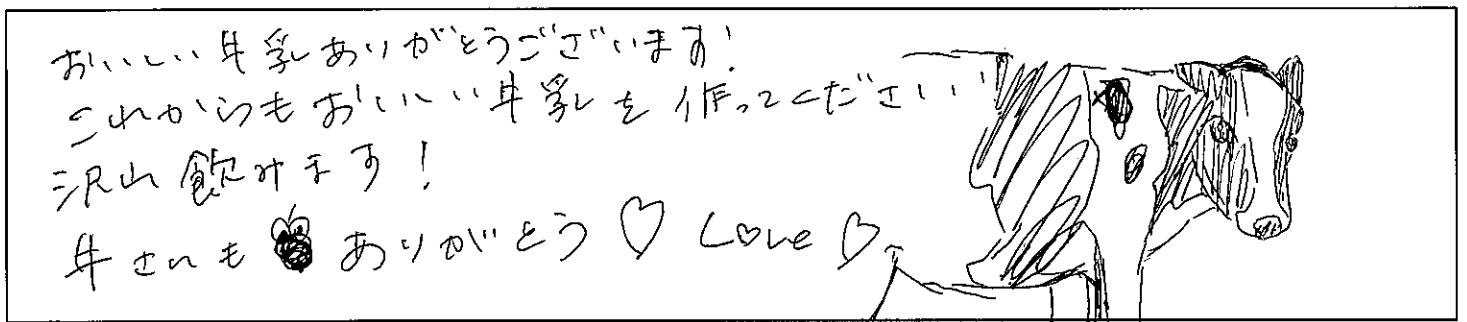 おいしい牛乳ありがとうございます!
これからもおいしい牛乳を作ってください
沢山飲みます!
牛さんもありがとう♡ Love♡